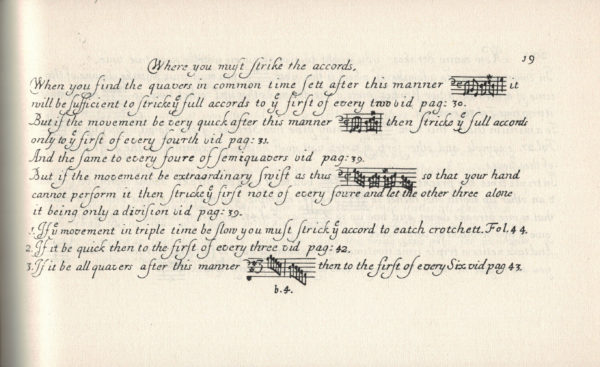 19
Where you must strike the accords.
When you find the quavers in common time sett after this manner it
will be sufficient to stricke yͤ full accords to yͤ first of every two vid pag: 30.
But if the movement be very quick after this manner then stricke yͤ full accords
only to yͤ first of every fourth vid pag: 31.
And the same to every foure of semiquavers vid pag: 39.
But if the movement be extraordinary swift as thus so that your hand
cannot perform it then stricke yͤ first note of every foure and let the other three alone
it being only a division vid pag: 39.
1. If yͤ movement in triple time be slow you must strick yͤ accord to eatch crotchett. Fol. 44.
2. If it be quick then to the first of every three vid pag: 42.
3. If it be all quavers after this manner then to the first of every Six vid pag 43.
b.4.